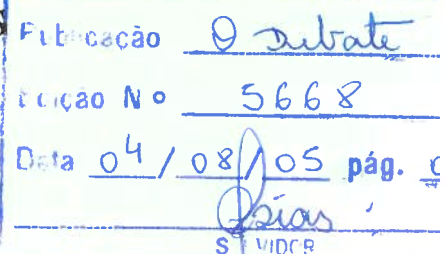 Publicação O Debate
Edição Nº 5668
Data 04/08/05 pág.
SERVIDOR